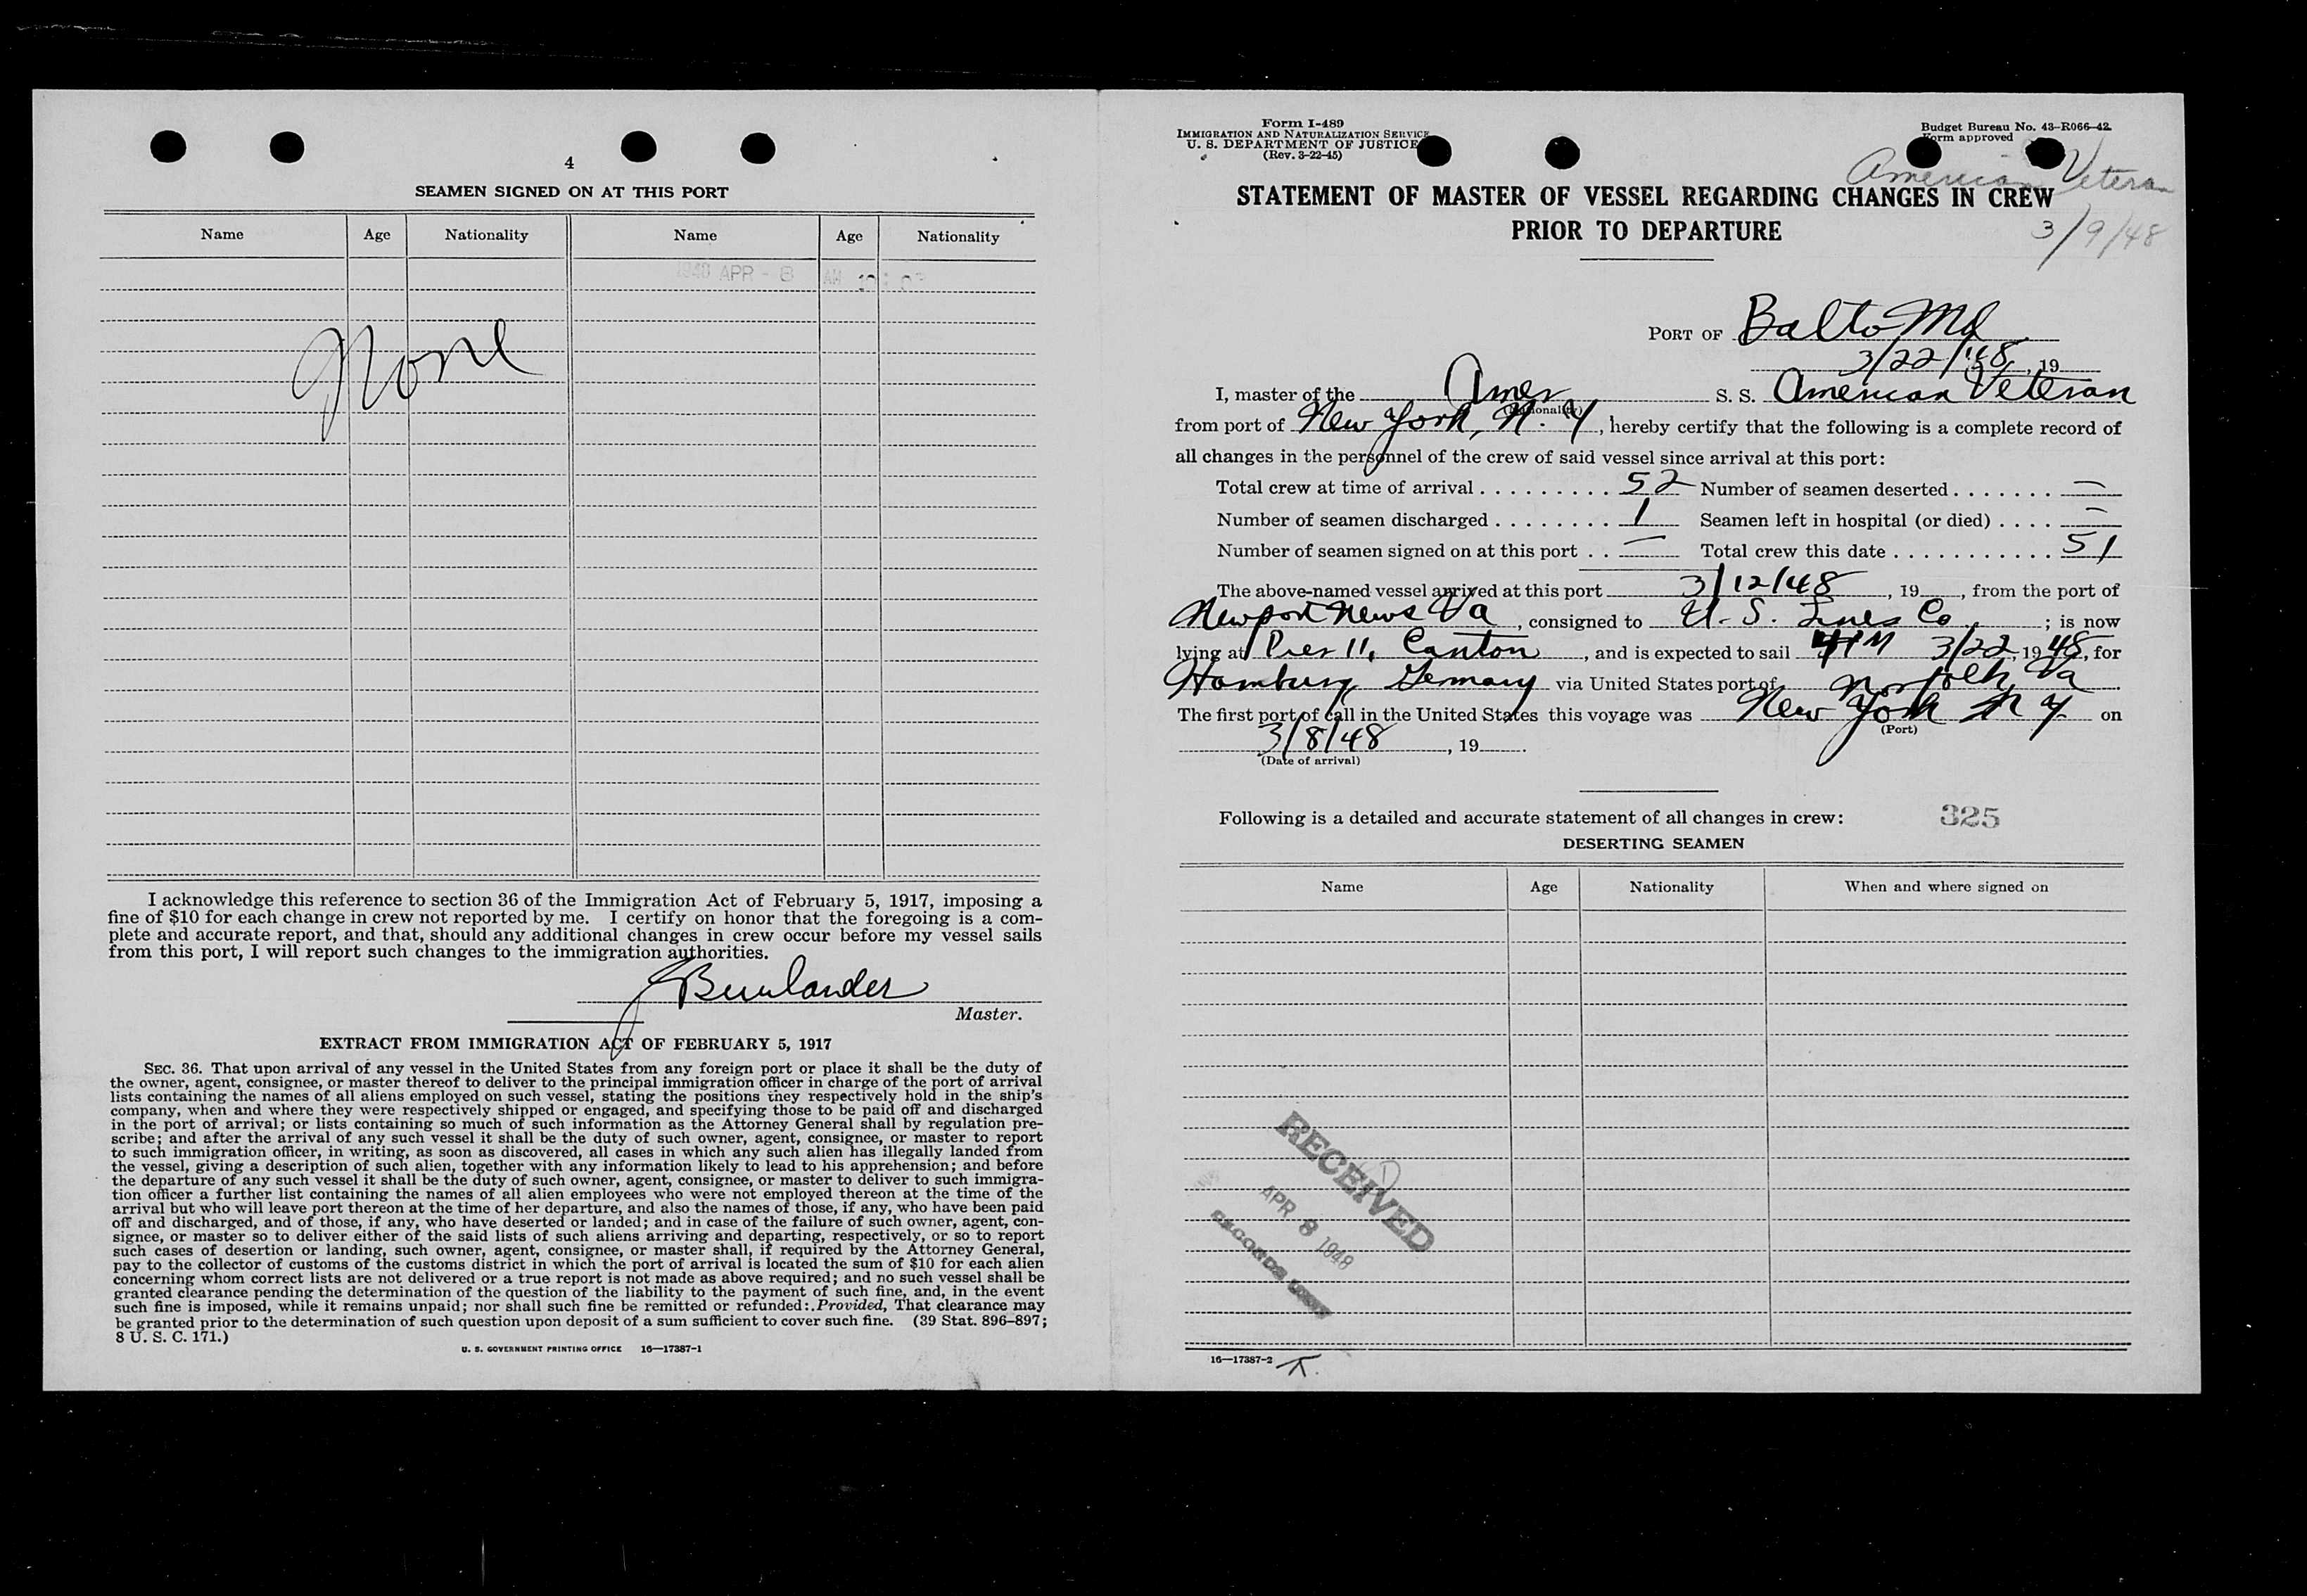 4
SEAMEN SIGNED ON AT THIS PORT
Name Age Nationality Name Age Nationality
APR - 8 AM
None
I acknowledge this reference to section 36 of the Immigration Act of February 5, 1917, imposing a
fine of $10 for each change in crew not reported by me. I certify on honor that the foregoing is a com-
plete and accurate report, and that, should any additional changes in crew occur before my vessel sails
from this port, I will report such changes to the immigration authorities.
Master.
EXTRACT FROM IMMIGRATION ACT OF FEBRUARY 5, 1917
SEC. 36. That upon arrival of any vessel in the United States from any foreign port or place it shall be the duty of
the owner, agent, consignee, or master thereof to deliver to the principal immigration officer in charge of the port of arrival
lists containing the names of all aliens employed on such vessel, stating the positions they respectively hold in the ship's
company, when and where they were respectively shipped or engaged, and specifying those to be paid off and discharged
in the port of arrival; or lists containing so much of such information as the Attorney General shall by regulation pre-
scribe; and after the arrival of any such vessel it shall be the duty of such owner, agent, consignee, or master to report
to such immigration officer, in writing, as soon as discovered, all cases in which any such alien has illegally landed from
the vessel, giving a description of such alien, together with any information likely to lead to his apprehension; and before
the departure of any such vessel it shall be the duty of such owner, agent, consignee, or master to deliver to such immigra-
tion officer a further list containing the names of all alien employees who were not employed thereon at the time of the
arrival but who will leave port thereon at the time of her departure, and also the names of those, if any, who have been paid
off and discharged, and of those, if any, who have deserted or landed; and in case of the failure of such owner, agent, con-
signee, or master so to deliver either of the said lists of such aliens arriving and departing, respectively, or so to report
such cases of desertion or landing, such owner, agent, consignee, or master shall, if required by the Attorney General,
pay to the collector of customs of the customs district in which the port of arrival is located the sum of $10 for each alien
concerning whom correct lists are not delivered or a true report is not made as above required; and no such vessel shall be
granted clearance pending the determination of the question of the liability to the payment of such fine, and, in the event
such fine is imposed, while it remains unpaid; nor shall such fine be remitted or refunded: Provided, That clearance may
be granted prior to the determination of such question upon deposit of a sum sufficient to cover such fine. (39 Stat. 896–897;
8 U. S. C. 171.)
U. S. GOVERNMENT PRINTING OFFICE 16—17387-1
Form I-489
IMMIGRATION AND NATURALIZATION SERVICE
U. S. DEPARTMENT OF JUSTICE
(Rev. 3-22-45)
Budget Bureau No. 43-R066-42
Form approved
American Veteran
STATEMENT OF MASTER OF VESSEL REGARDING CHANGES IN CREW
PRIOR TO DEPARTURE
3/9/48
PORT OF Balto Md
3/22/48, 19
I, master of the Amer S. S. American Veteran
(Nationality)
from port of New York, N. Y, hereby certify that the following is a complete record of
all changes in the personnel of the crew of said vessel since arrival at this port:
Total crew at time of arrival . . . . . . . . . 52 Number of seamen deserted . . . . . . . —
Number of seamen discharged . . . . . . . . 1 Seamen left in hospital (or died) . . . . —
Number of seamen signed on at this port . . — Total crew this date . . . . . . . . . . . . 51
The above-named vessel arrived at this port 3/12/48, 19, from the port of
Newport News Va, consigned to U. S. Lines Co; is now
lying at Pier 11, Canton, and is expected to sail 4PM 3/22, 1948, for
Hamburg Germany via United States port of Norfolk, Va
The first port of call in the United States this voyage was New York N Y on
(Port)
3/8/48, 19
(Date of arrival)
Following is a detailed and accurate statement of all changes in crew: 325
DESERTING SEAMEN
Name Age Nationality When and where signed on
RECEIVED
APR 8 1948
RECORDS
16—17387-2